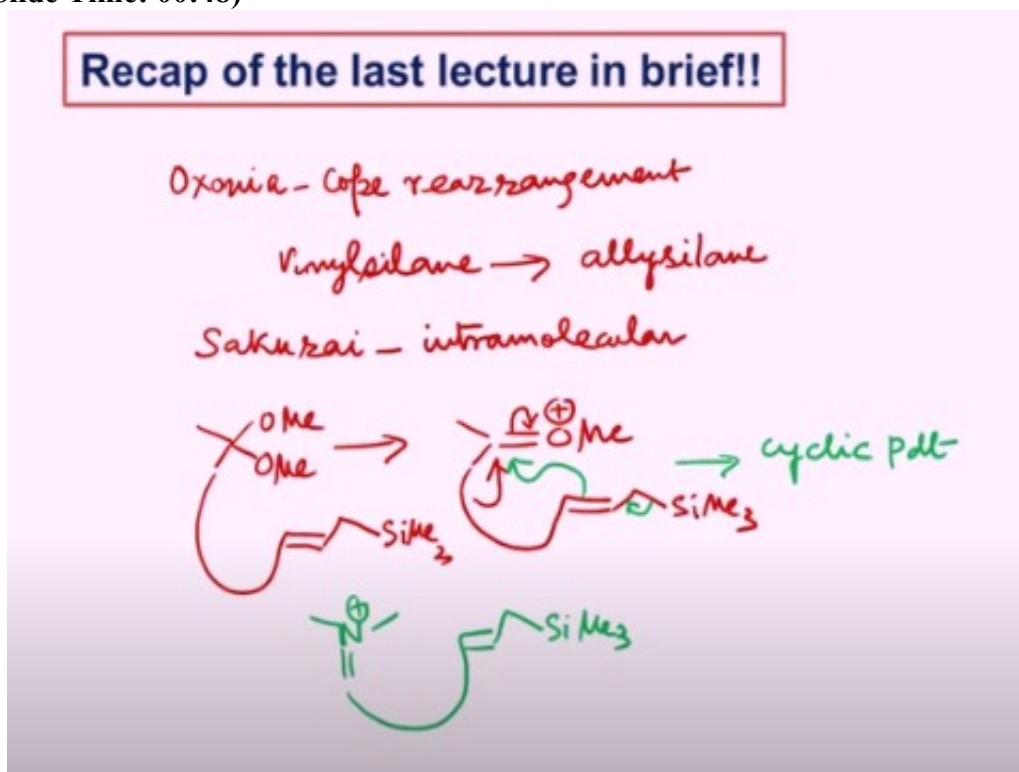 Slide Time: 00:48)
Recap of the last lecture in brief!!
Oxonia - Cope rearrangement
Vinylsilane → allysilane
Sakurai - intramolecular
OMe
OMe
SiMe3
→
⊕
OMe
SiMe3
→ cyclic pdt
⊕
N
SiMe3